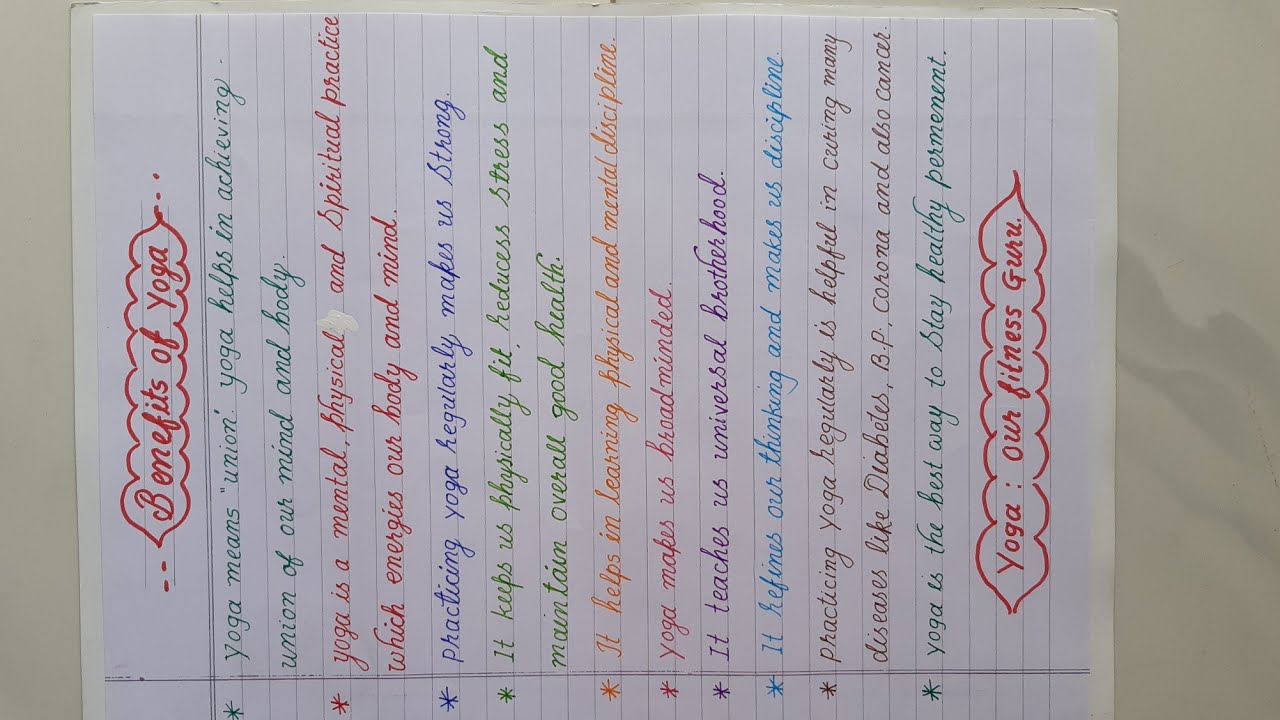 Benefits of Yoga
* Yoga means "union". Yoga helps in achieving
union of our mind and body.
* Yoga is a mental, physical and spiritual practice
which energies our body and mind.
* Practicing yoga regularly makes us strong.
* It keeps us physically fit, reducess stress and
maintain overall good health.
* It helps in learning physical and mental discipline.
* Yoga makes us broadminded.
* It teaches us universal brotherhood.
* It refines our thinking and makes us discipline.
* Practicing yoga regularly is helpful in curing many
diseases like Diabetes, B.P, corona and also cancer.
* Yoga is the best way to stay healthy permement.
Yoga : Our fitness Guru.